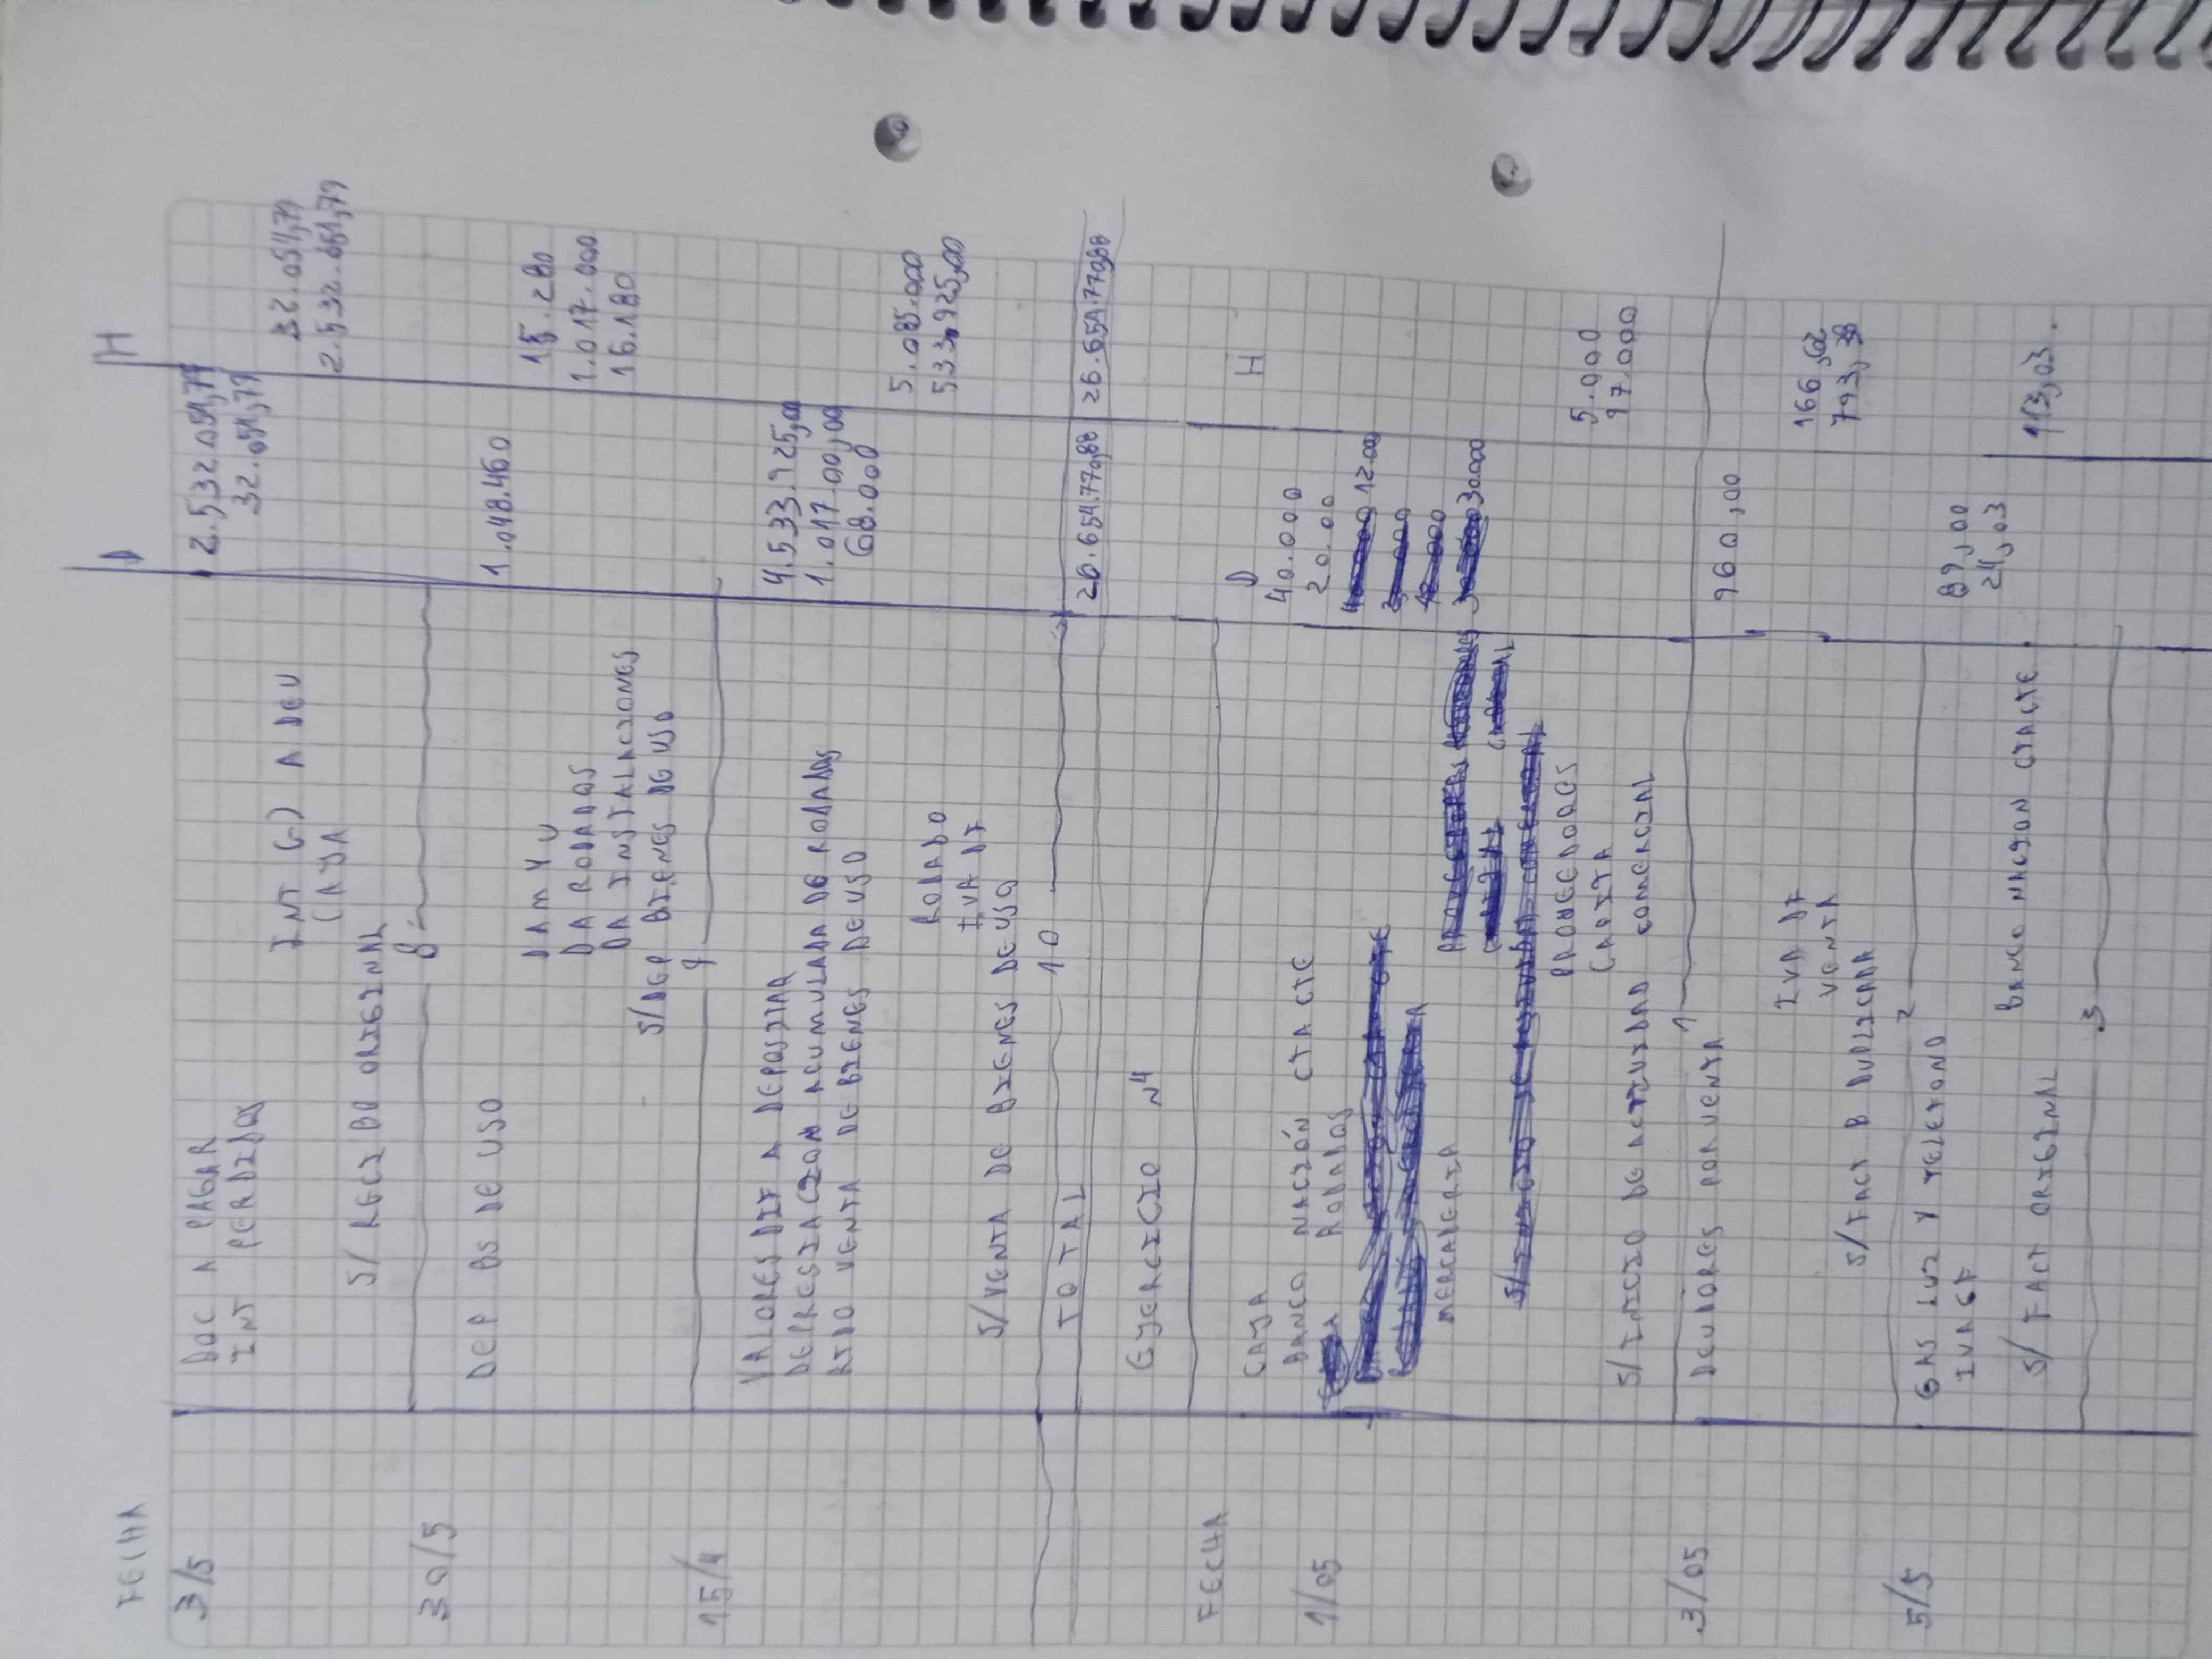 FECHA D H
3/5 DOC A PAGAR 2.532.051,79
INT PERDIDOS 32.051,79
INT G) A DEV 32.051,79
CAJA 2.532.051,79
S/ RECIBO ORIGINAL
8
30/5 DEP BS DE USO 1.048.460
DAMYU 15.280
DA RODADOS 1.017.000
DA INSTALACIONES 16.180
S/DEP BIENES DE USO
9
15/4 VALORES DIF A DEPOSITAR 4.533.925,00
DEPRESIACION ACUMULADA DE RODADOS 1.017.00,00
RTDO VENTA DE BIENES DE USO 68.000
RODADO 5.085.000
IVA DF 533.925,00
S/VENTA DE BIENES DE USO
10
TOTAL 26.654.770,88 26.654.770,88
EJERCICIO N4
FECHA D H
1/05 CAJA 40.000
BANCO NACIÓN CTA CTE 20.00
RODADOS 12.00
MERCADERIA 30.000
PROVEEDORES 5.000
CAPITA 97.000
S/INICIO DE ACTIVIDAD COMERCIAL
1
3/05 DEUDORES POR VENTA 960,00
IVA DF 166,62
VENTA 793,38
S/FACT B DUPLICADA
2
5/5 GAS LUZ Y TELEFONO 89,00
IVA CF 24,03
BANCO NACION CTACTE 113,03.
S/ FACT ORIGINAL
3